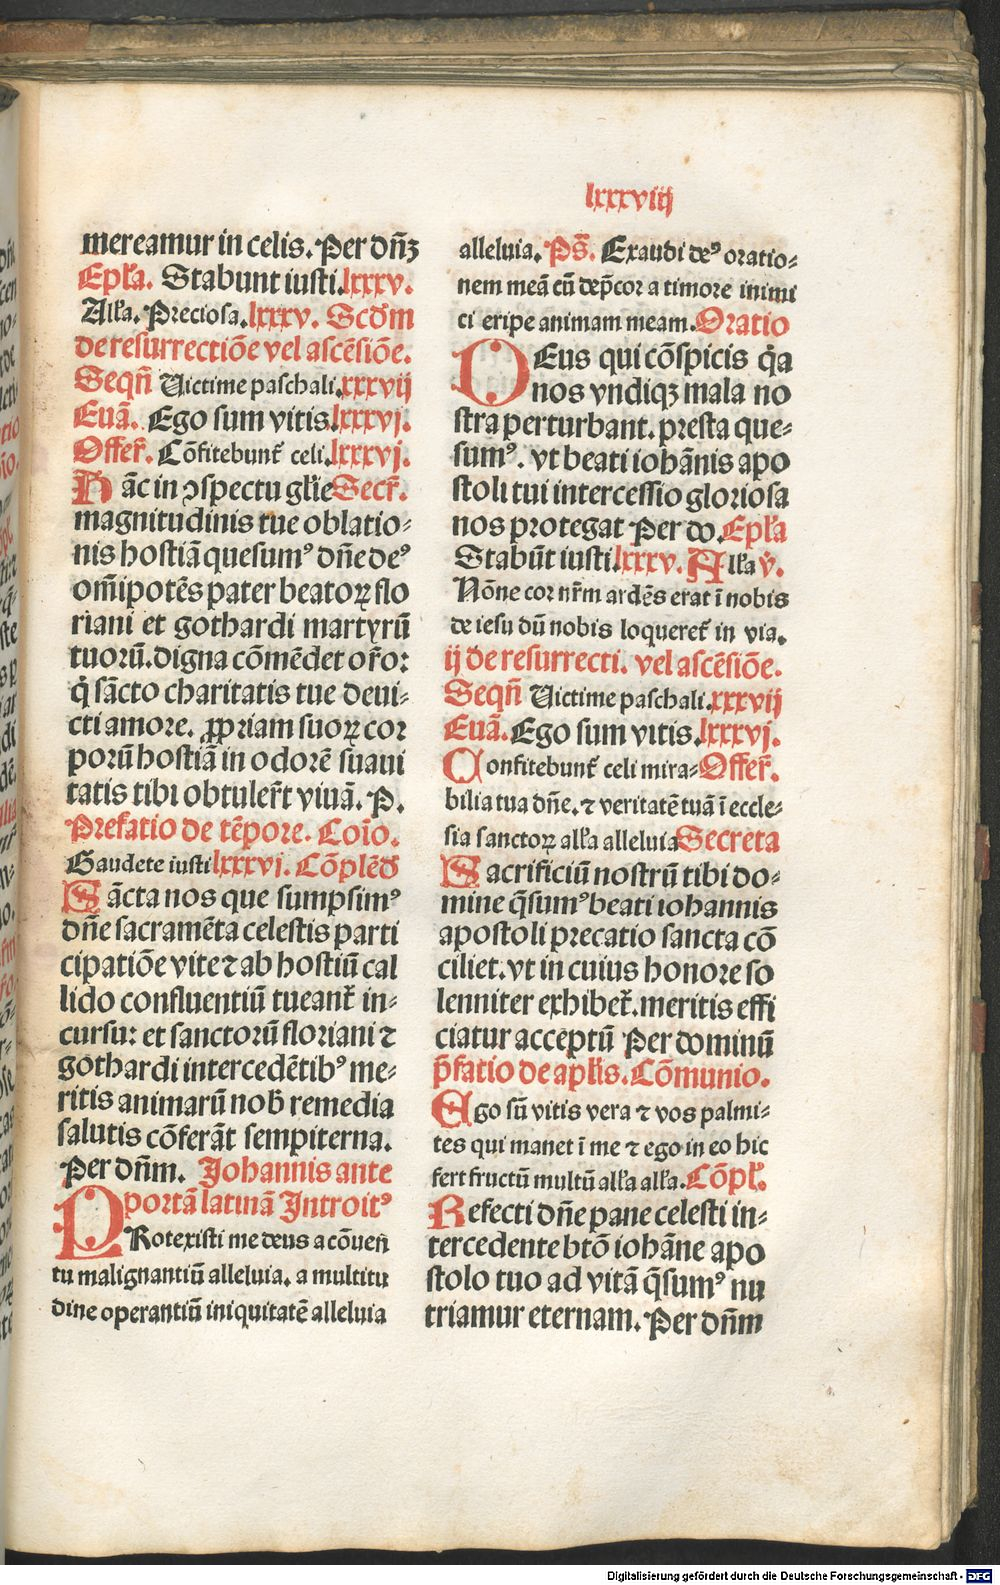 lxxxviij
mereamur in celis. Per dn̄ꝫ
Ep̄la. Stabunt iusti. lxxxv.
All'a. Preciosa. lxxxv. Scd̄m
de resurrectiōe vel ascēsiōe.
Seqn̄ Uictime paschali. xxxvij
Euā. Ego sum vitis. lxxxvj.
Offer̄. Cōfitebunt̄ celi. lxxxvj.
Hāc in ↄspectu gl'ie Secr̄.
magnitudinis tue oblatio⸗
nis hostiā quesumꝰ dn̄e deꝰ
om̄ipotēs pater beatoꝝ flo
riani et gothardi martyrū
tuorū. digna cōmēdet or̄o:
q̄ sācto charitatis tue deui⸗
cti amore. ꝓpriam suoꝝ cor
porū hostiā in odorē suaui
tatis tibi obtuler̄t viuā. P.
Prefatio de tēpore. Coīo.
Gaudete iusti lxxxvj. Cōplēd̄
Sācta nos que sumpsimꝰ
dn̄e sacramēta celestis parti
cipatiōe vite ⁊ ab hostiū cal
lido confluentiū tueant̄ in⸗
cursu: et sanctorū floriani ⁊
gothardi intercedētibꝰ me⸗
ritis animarū nob̄ remedia
salutis cōferāt sempiterna.
Per dn̄m. Johannis ante
portā latinā Introitꝰ
PRotexisti me deus a cōuen̄
tu malignantiū alleluia. a multitu
dine operantiū iniquitatē alleluia
alleluia. Ps̄. Exaudi deꝰ oratio⸗
nem meā cū dep̄cor a timore inimi
ci eripe animam meam. Oratio
DEus qui cōspicis q̄a
nos vndiqꝫ mala no
stra perturbant. presta que⸗
sumꝰ. vt beati iohānis apo
stoli tui intercessio gloriosa
nos protegat Per do. Ep̄la
Stabūt iusti. lxxxv. All'a v̄.
Nōne cor nr̄m ardēs erat ī nobis
de iesu dū nobis loqueret̄ in via.
ij de resurrecti. vel ascēsiōe.
Seqn̄ Uictime paschali. xxxvij
Euā. Ego sum vitis. lxxxvj.
Confitebunt̄ celi mira⸗ Offer̄.
bilia tua dn̄e. ⁊ veritatē tuā ī eccle⸗
sia sanctoꝝ all'a alleluia Secreta
Sacrificiū nostrū tibi do⸗
mine q̄sumꝰ beati iohannis
apostoli precatio sancta cō
ciliet. vt in cuius honore so
lenniter exhibet̄. meritis effi
ciatur acceptū Per dominū
p̄fatio de apl'is. Cōmunio.
Ego sū vitis vera ⁊ vos palmi⸗
tes qui manet ī me ⁊ ego in eo hic
fert fructū multū all'a all'a. Cōpl'.
Refecti dn̄e pane celesti in⸗
tercedente btō iohāne apo
stolo tuo ad vitā q̄sumꝰ nu
triamur eternam. Per dn̄m
Digitalisierung gefördert durch die Deutsche Forschungsgemeinschaft - DFG